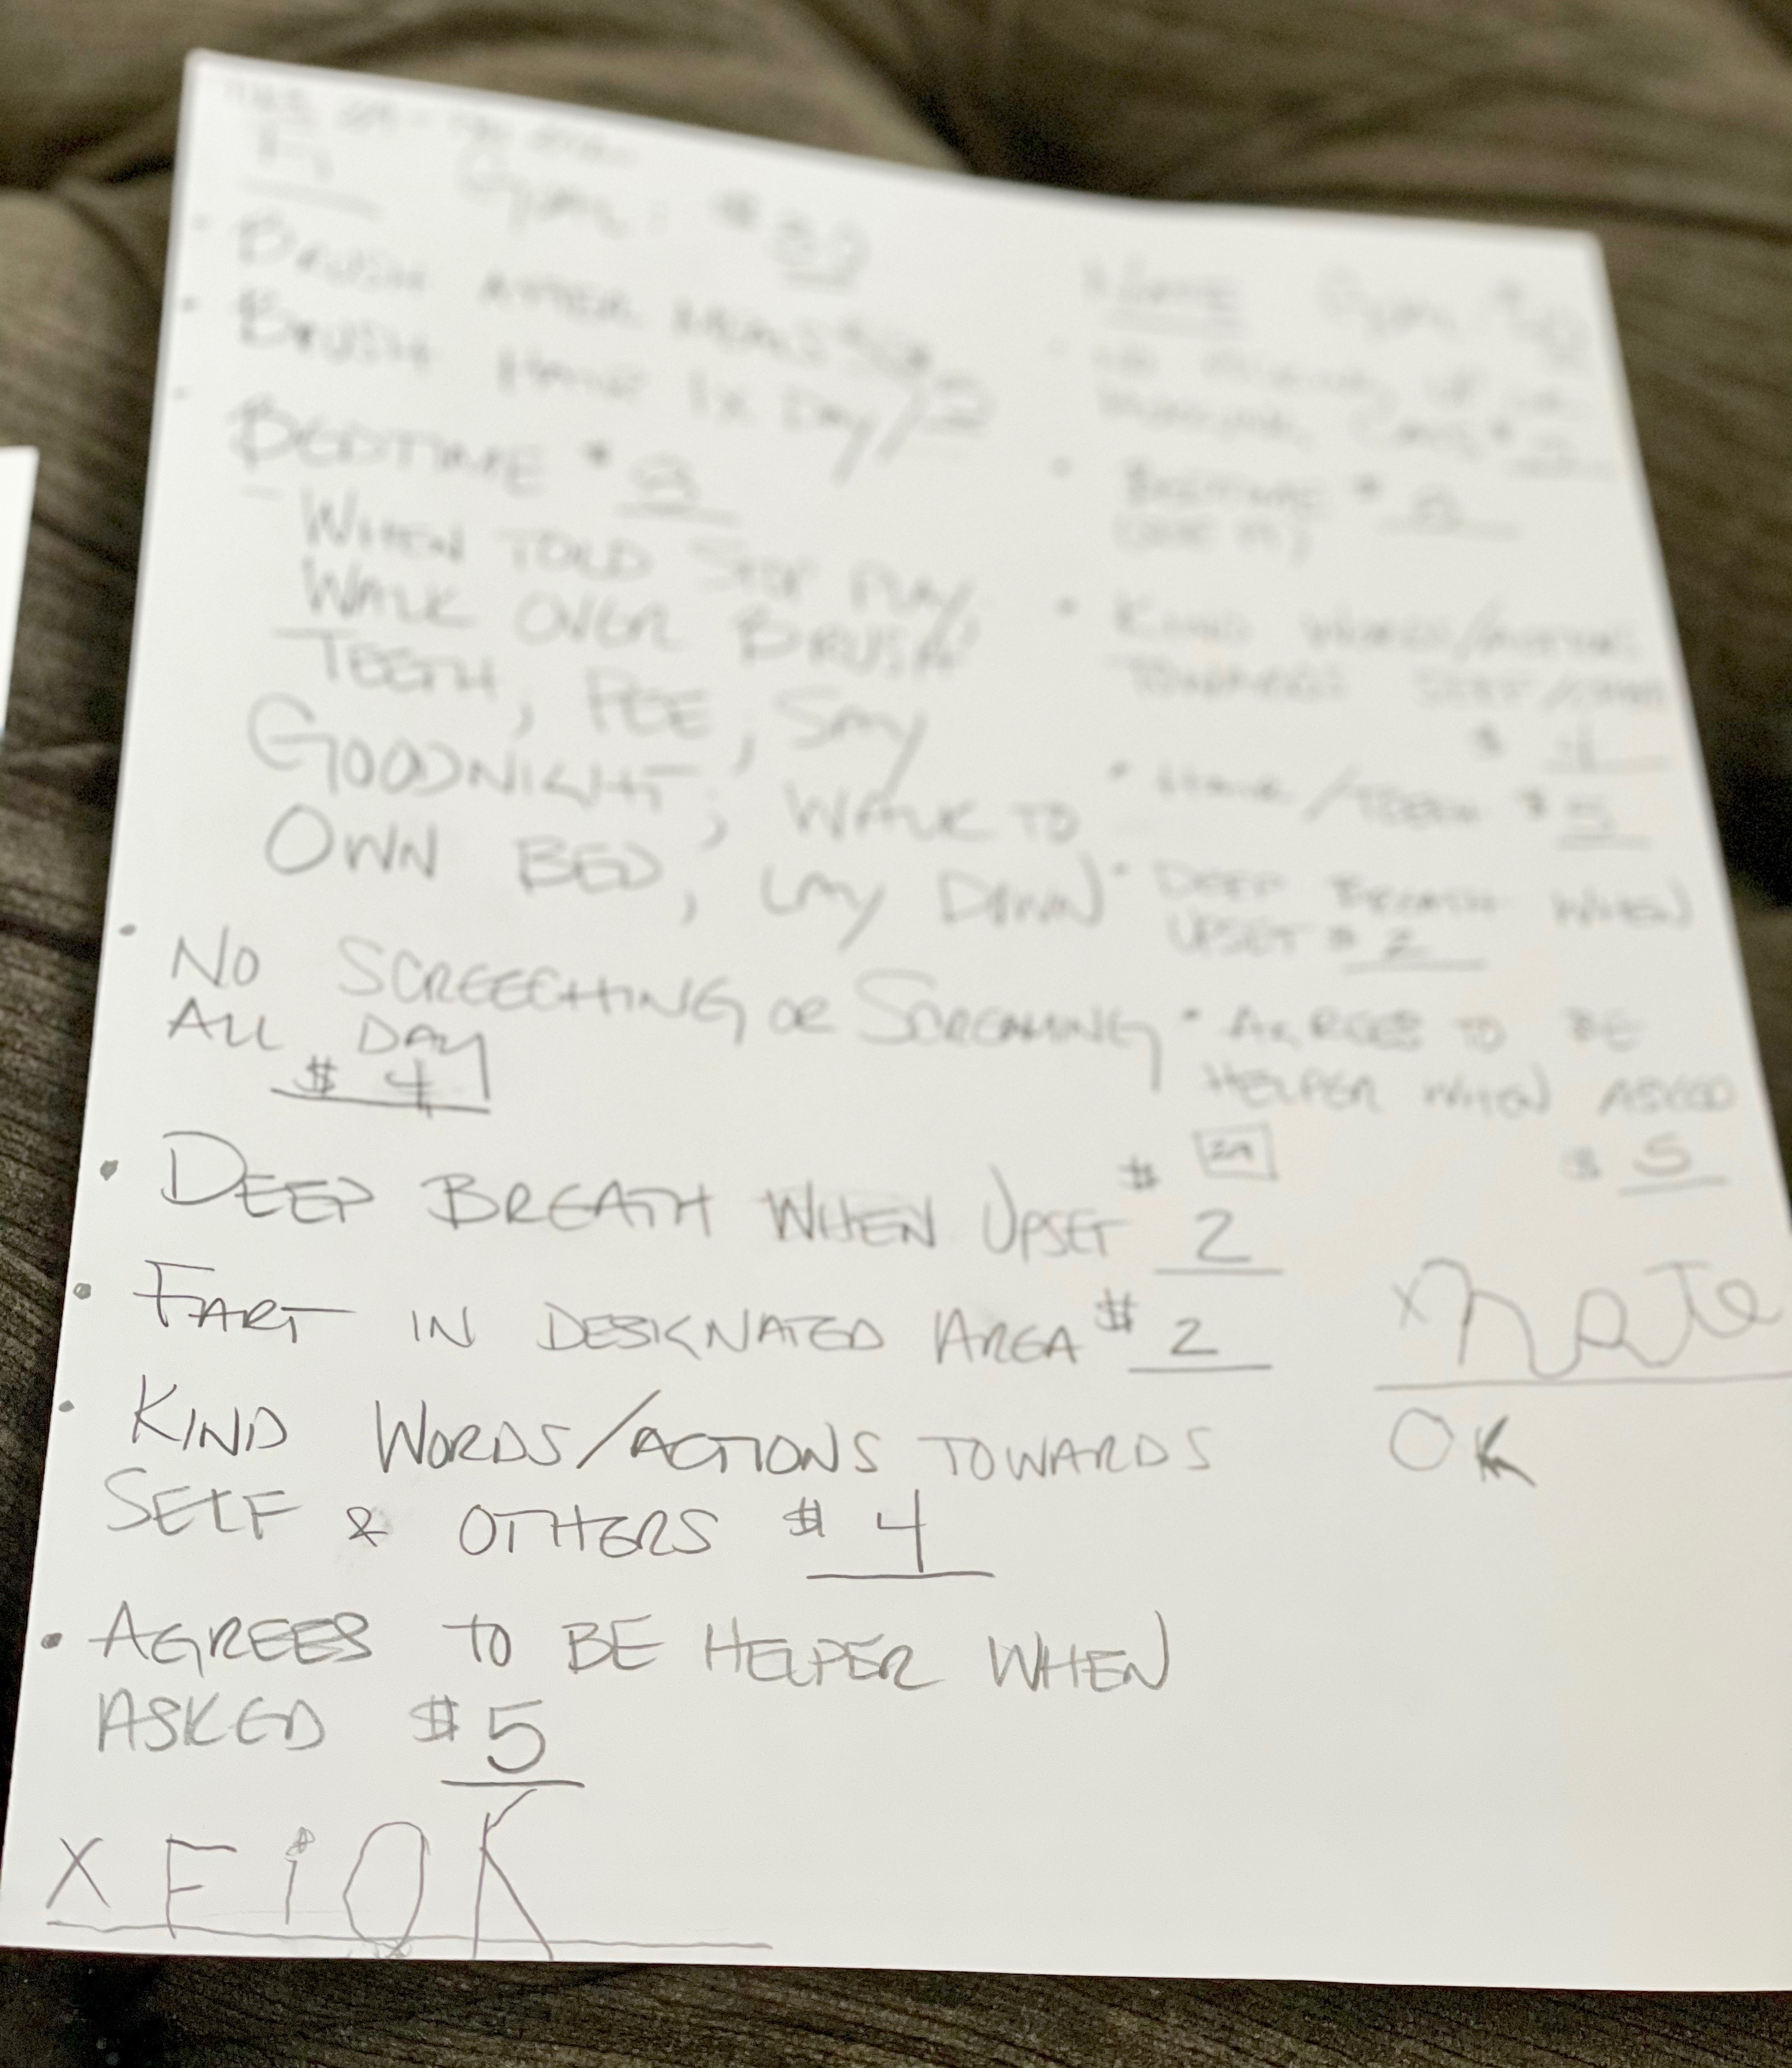 Fi GOAL: $
• BRUSH AFTER MEALS
• BRUSH HAIR 1X DAY/
• BEDTIME $ 8
- WHEN TOLD STOP PLAY,
WALK OVER BRUSH
TEETH, PEE, SAY
GOODNIGHT, WALK TO
OWN BED, LAY DOWN
• NO SCREECHING OR SCREAMING
ALL DAY
$ 4
• DEEP BREATH WHEN UPSET $ 2
• FART IN DESIGNATED AREA $ 2
• KIND WORDS/ACTIONS TOWARDS
SELF & OTHERS $ 4
• AGREES TO BE HELPER WHEN
ASKED $ 5
X Fi OK
NATE GOAL
• BEDTIME $ 8
• KIND WORDS/ACTIONS
TOWARDS SELF/
$ 4
• HAIR/TEETH $ 5
• DEEP BREATH WHEN
UPSET $ 2
• AGREES TO BE
HELPER WHEN ASKED
$ 5
x nate
OK